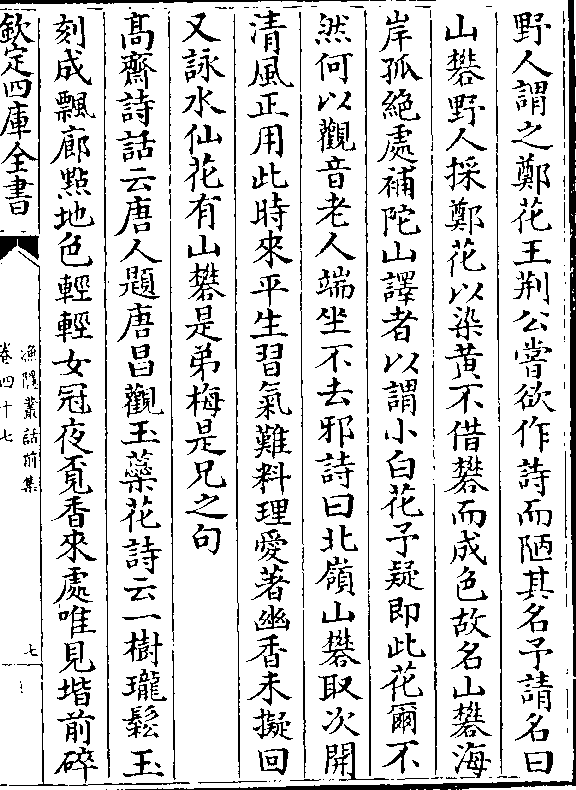 野人謂之鄭花王荆公嘗欲作詩而陋其名予請名曰
山礬野人採鄭花以染黃不借礬而成色故名山礬海
岸孤絶處補陀山譯者以謂小白花予疑即此花爾不
然何以觀音老人端坐不去邪詩曰北嶺山礬取次開
清風正用此時來平生習氣難料理愛著幽香未擬回
又詠水仙花有山礬是弟梅是兄之句
髙齋詩話云唐人題唐昌觀玉蘂花詩云一樹瓏鬆玉
刻成飄廊㸃地色輕輕女冠夜覔香來處唯見堦前碎
欽定四庫全書
漁隱叢話前集
卷四十七
七